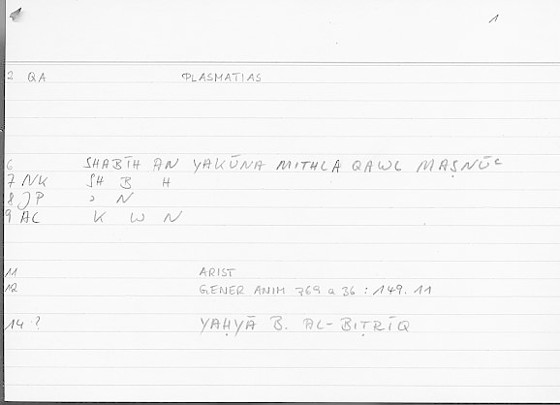 1
2 QA PLASMATIAS
6 SHABĪH AN YAKŪNA MITHLA QAWL MAṢNŪᶜ
7 NK SH B H
8 JP ᵓ N
9 AL K W N
11 ARIST
12 GENER ANIM 769 a 36 : 149.11
14 ? YAḤYĀ B. AL-BIṬRĪQ